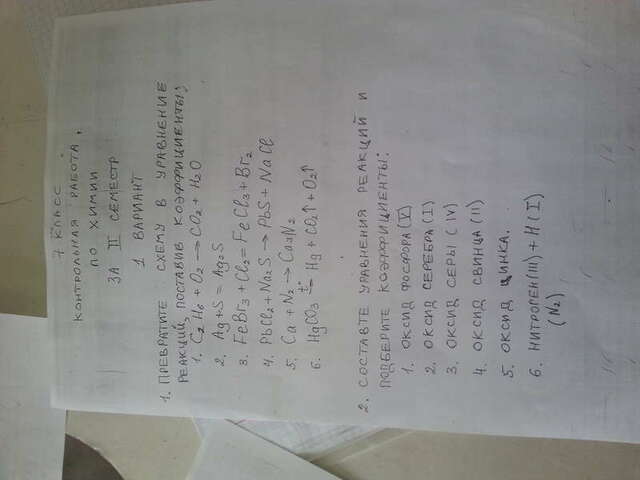 7 КЛАСС
КОНТРОЛЬНАЯ РАБОТА,
ПО ХИМИИ
ЗА II СЕМЕСТР
1 ВАРИАНТ
1. ПРЕВРАТИТЕ СХЕМУ В УРАВНЕНИЕ
РЕАКЦИЙ, ПОСТАВИВ КОЭФФИЦИЕНТЫ:
1. C2H6 + O2 → CO2 + H2O
2. Ag+S = Ag2S
3. FeBr3 + Cl2 = FeCl3 + Br2
4. PbCl2 + Na2S → PbS + NaCl
5. Ca + N2 → Ca3N2
6. HgCO3 t° → Hg + CO2↑ + O2↑
2. СОСТАВТЕ УРАВНЕНИЯ РЕАКЦИЙ И
ПОДБЕРИТЕ КОЭФФИЦИЕНТЫ:
1. ОКСИД ФОСФОРА (V)
2. ОКСИД СЕРЕБРА (I)
3. ОКСИД СЕРЫ (IV)
4. ОКСИД СВИНЦА (II)
5. ОКСИД ЦИНКА.
6. НИТРОГЕН (III) + H (I)
(N2)